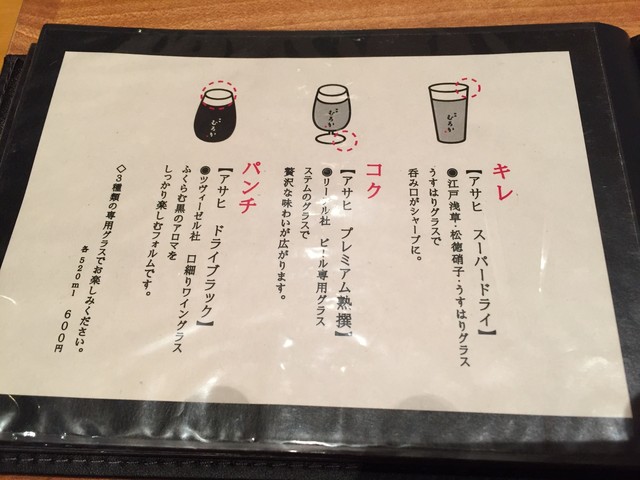 キレ
【アサヒ スーパードライ】
◉江戸浅草・松徳硝子・うすはりグラス
うすはりグラスで
呑み口がシャープに。
コク
【アサヒ プレミアム熟撰】
◉リーデル社 ビール専用グラス
ステムのグラスで
贅沢な味わいが広がります。
パンチ
【アサヒ ドライブラック】
◉ツヴィーゼル社 口細りワイングラス
ふくらむ黒のアロマを
しっかり楽しむフォルムです。
◇3種類の専用グラスでお楽しみください。
各520ml 600円
むろか
むろか
むろか